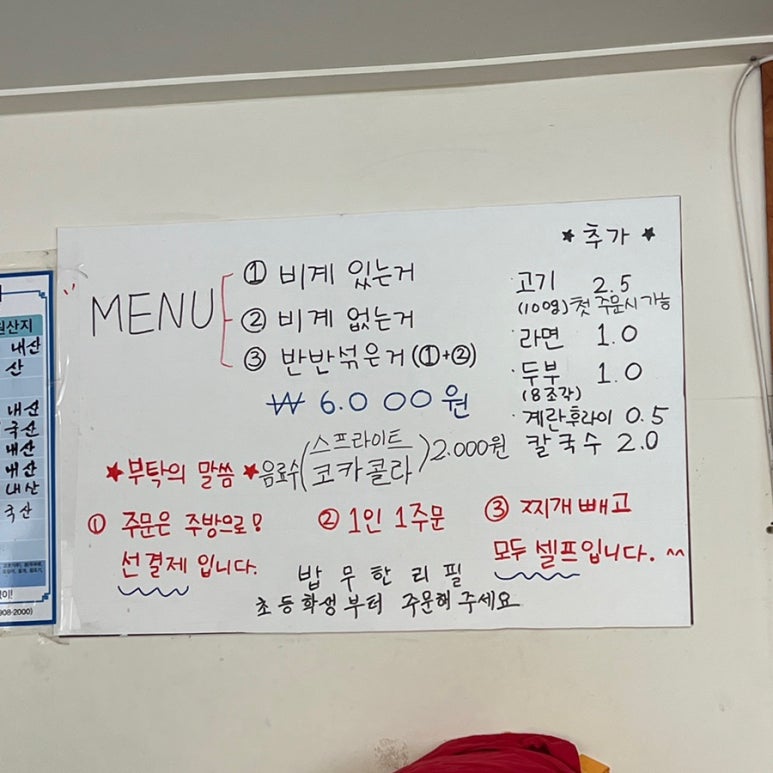 MENU
① 비계 있는거
② 비계 없는거
③ 반반섞은거 (①+②)
₩ 6.000원
★ 추가 ★
고기 2.5
(100g) 첫 주문시 가능
라면 1.0
두부 1.0
(8조각)
계란후라이 0.5
칼국수 2.0
음료수 (스프라이트
코카콜라) 2.000원
★부탁의 말씀★
① 주문은 주방으로!
선결제 입니다.
② 1인 1주문
③ 찌개 빼고
모두 셀프입니다. ^^
밥 무한리필
초등학생부터 주문해 주세요
원산지
내산
산
내산
국산
내산
내산
내산
국산
908-2000)